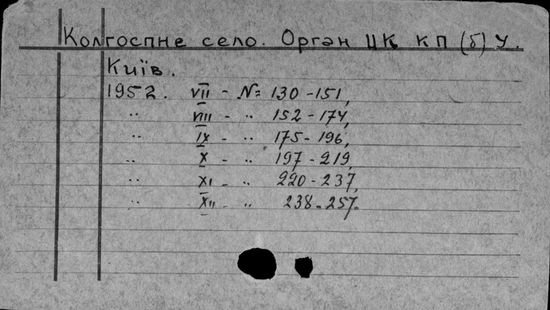 Колгоспне село. Орган ЦК КП(б)У.
Київ.
1952. VII - № 130-151,
" VIII - " 152-174,
" IX - " 175-196,
" X - " 197-219,
" XI - " 220-237,
" XII - " 238-257.